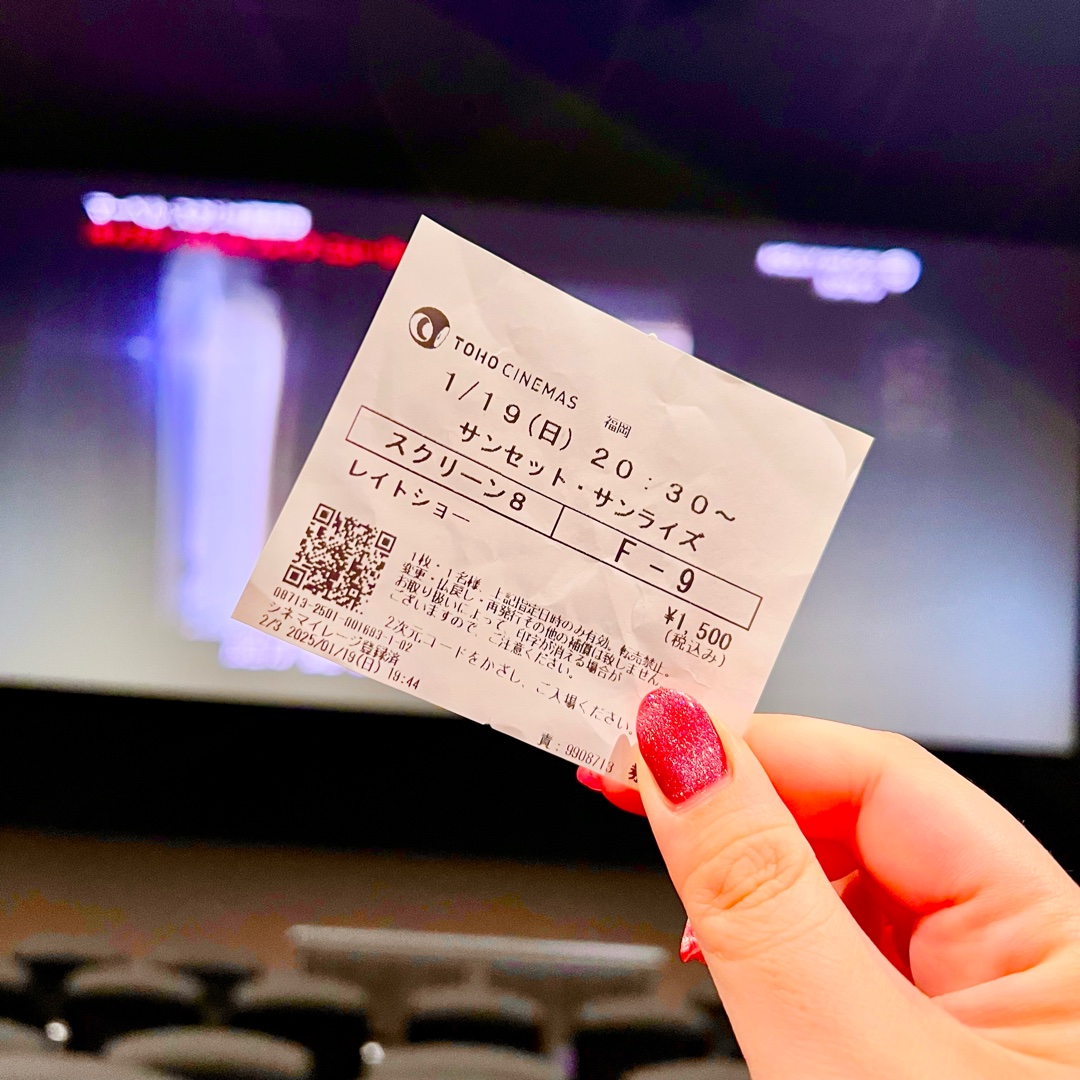 TOHO CINEMAS 福岡
1/19(日) 20:30~
サンセット・サンライズ
スクリーン8 F-9
レイトショー ¥1,500
(税込み)
1枚・1名様、上記指定日時のみ有効。転売禁止。
変更・払戻し・再発行その他の補償は致しません。
お取り扱いによって、印字が消える場合が
ございますので、ご注意ください。
08713-2501-001603-1-02
2次元コードをかざし、ご入場ください。
シネマイレージ登録済
2/3 2025/01/19(日) 19:44
責:9908713